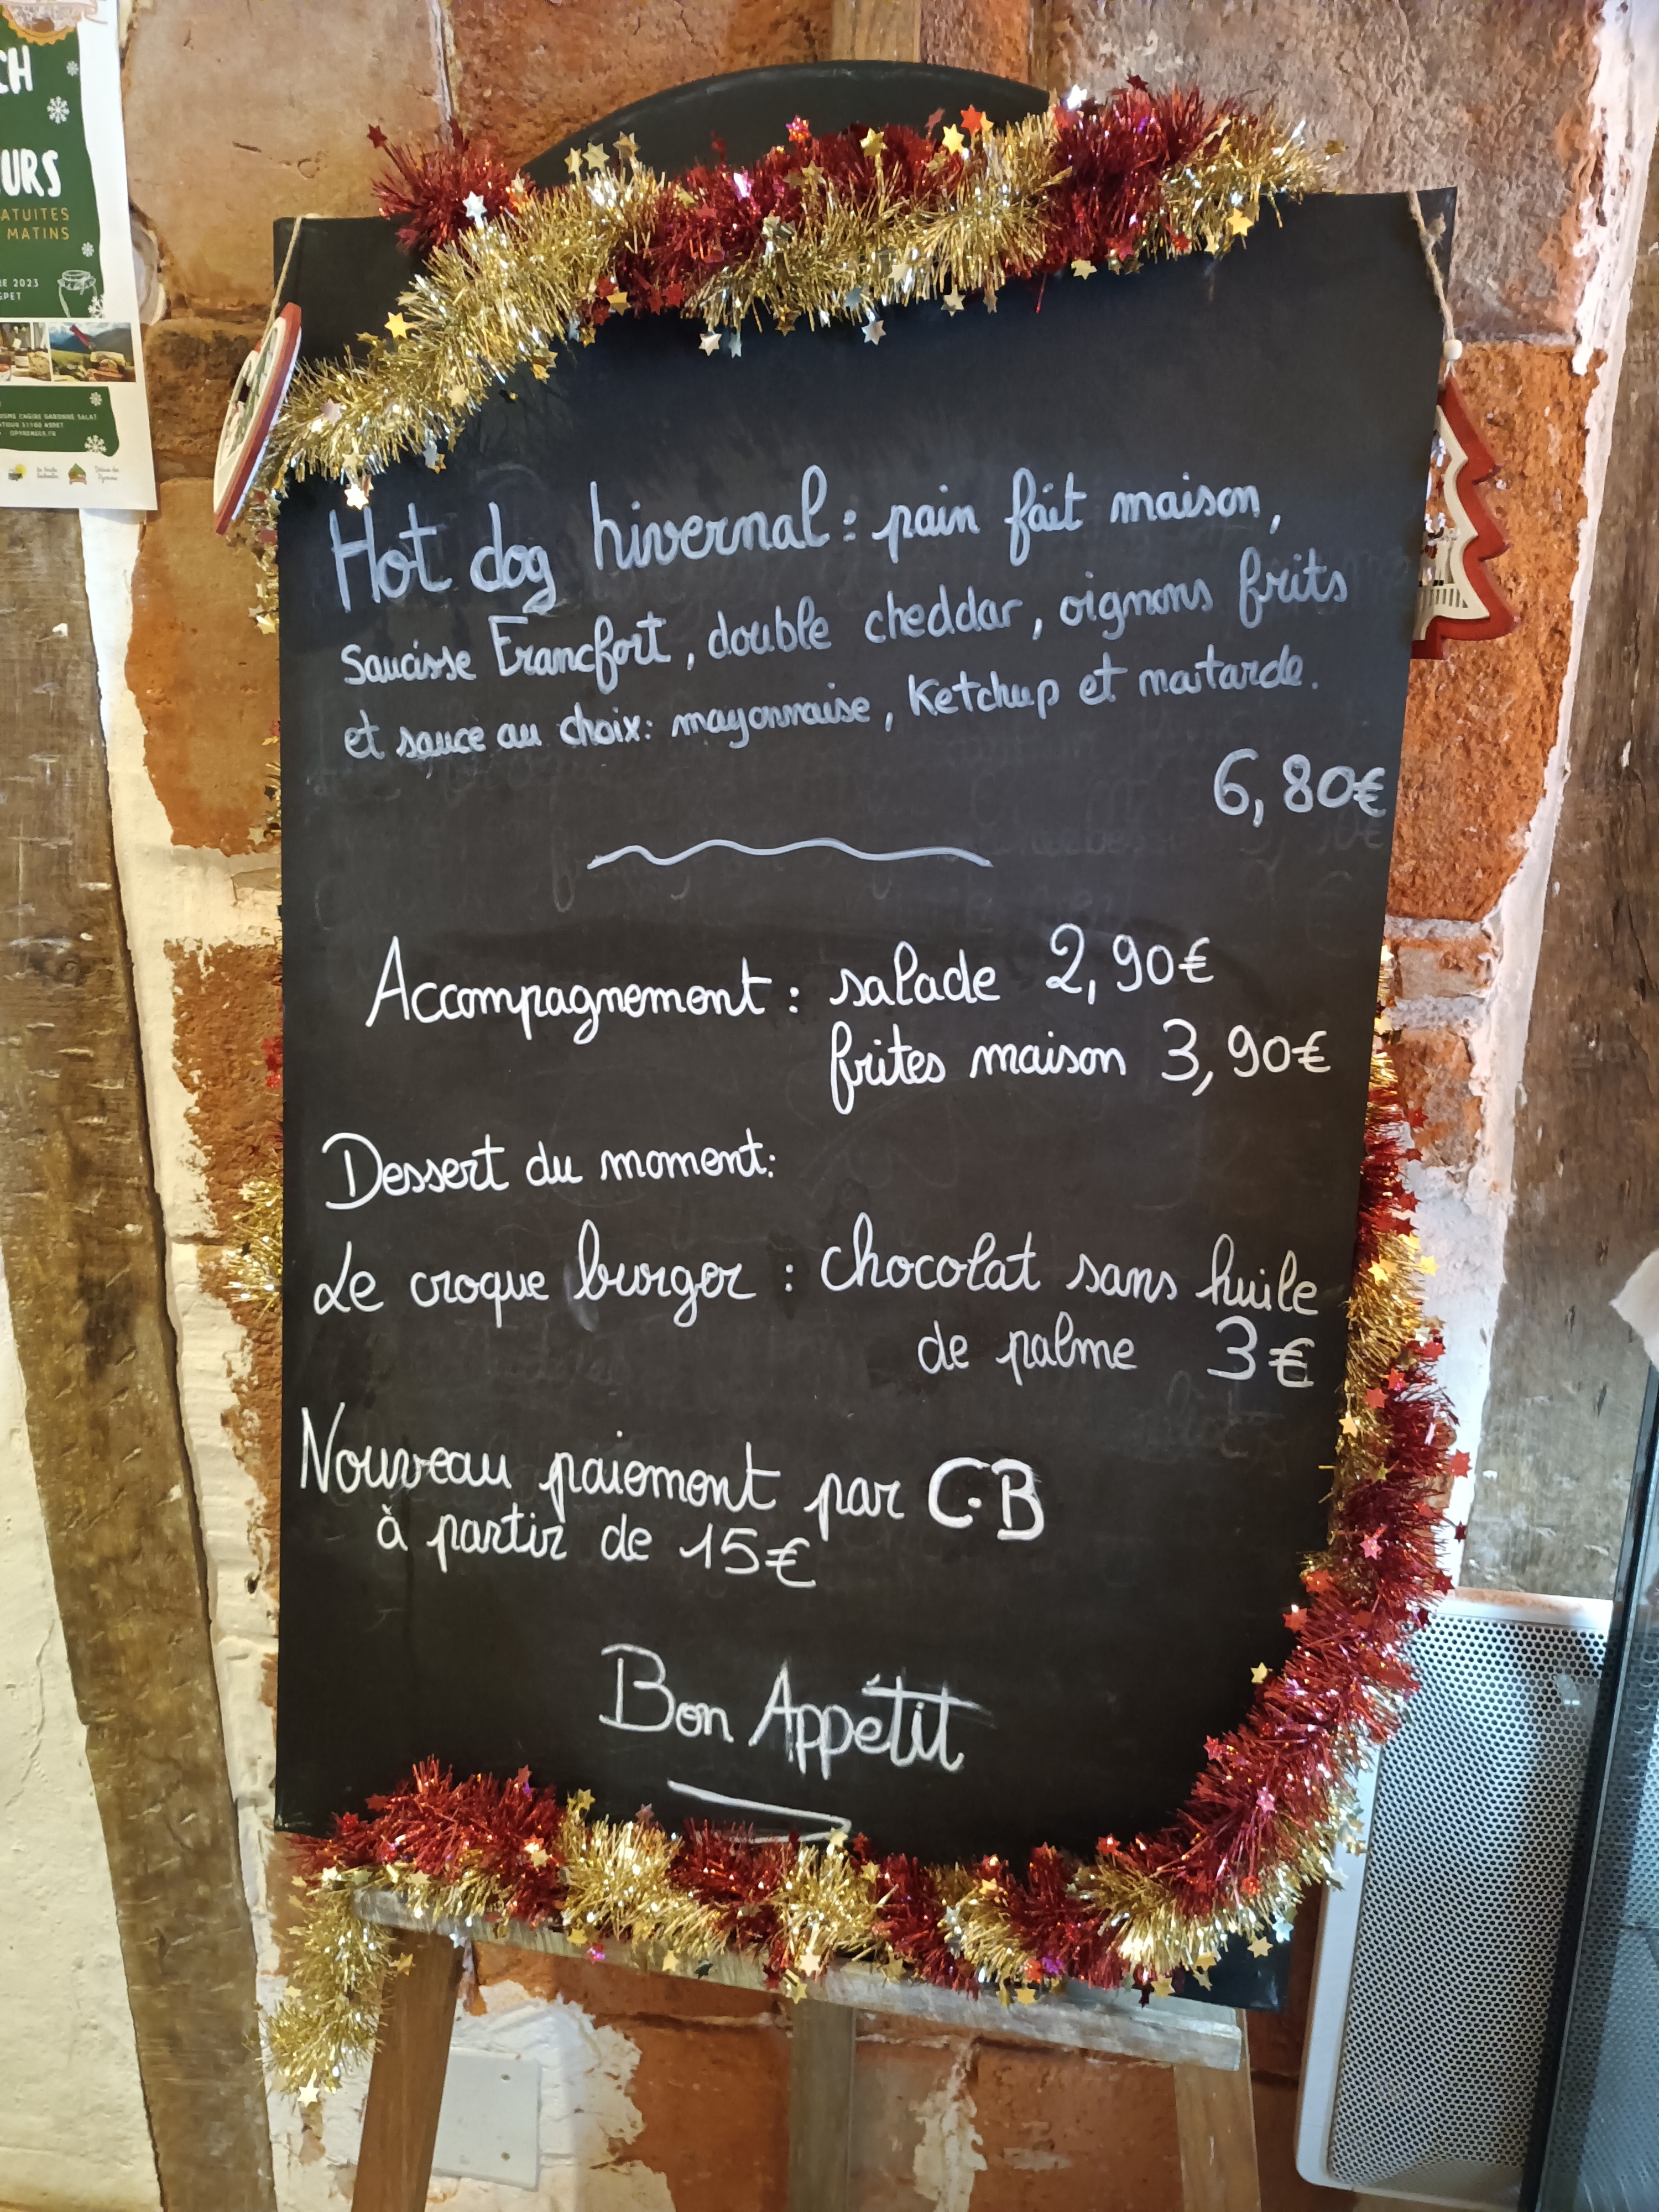 CH
URS
ATUITES
MATINS
RE 2023
SPET
Hot dog hivernal : pain fait maison,
saucisse Francfort, double cheddar, oignons frits
et sauce au choix: mayonnaise, Ketchup et moutarde.
6,80€
Accompagnement : salade 2,90€
frites maison 3,90€
Dessert du moment:
Le croque burger : chocolat sans huile
de palme 3€
Nouveau paiement par C.B
à partir de 15€
Bon Appétit